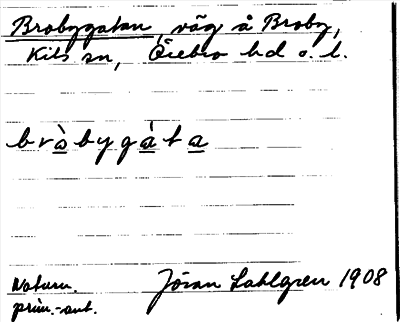 Brobygatan, väg å Broby,
Kils sn, Örebro hd o. l.
bròbygáta
Naturn.
prim.-ant.
Jöran Sahlgren 1908